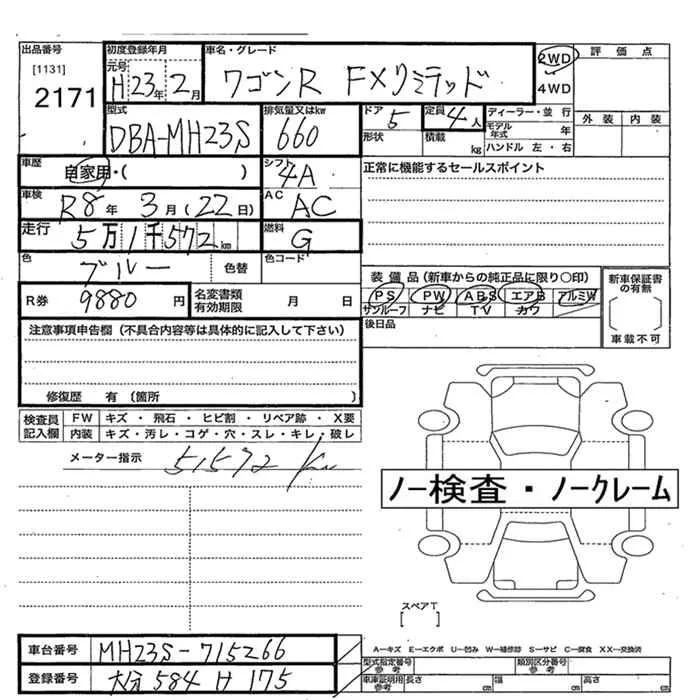 出品番号 初度登録年月 車名・グレード 2WD 評価点
[1131] 元号 4WD
2171 H23年2月 ワゴンR FXリミテッド
型式 排気量又はkw ドア 定員 ディーラー・並行 外装 内装
DBA-MH23S 660 5 4人 モデル年式 年
形状 積載 kg ハンドル 左・右
車歴 自家用・( ) シフト 4A 正常に機能するセールスポイント
車検 R8年 3月(22日) AC AC
走行 5万1千572km 燃料 G
色 ブルー 色替 色コード 装備品(新車からの純正品に限り○印) 新車保証書の有無
R券 9880円 名変書類有効期限 月 日 PS PW ABS エアB アルミW
サンルーフ ナビ TV カワ
後日品 車載不可
注意事項申告欄(不具合内容等は具体的に記入して下さい)
修復歴 有 〔箇所 〕
検査員記入欄 FW キズ・飛石・ヒビ割・リペア跡・X要
内装 キズ・汚レ・コゲ・穴・スレ・キレ・破レ
メーター指示 51572 km
ノー検査・ノークレーム
スペアT
[ ]
車台番号 MH23S-715266
A=キズ E=エクボ U=凹み W=補修跡 S=サビ C=腐食 XX=交換済
型式指定番号参考 類別区分番号参考
登録番号 大分 584 H 175
車庫証明用参考 長さ cm 幅 cm 高さ cm